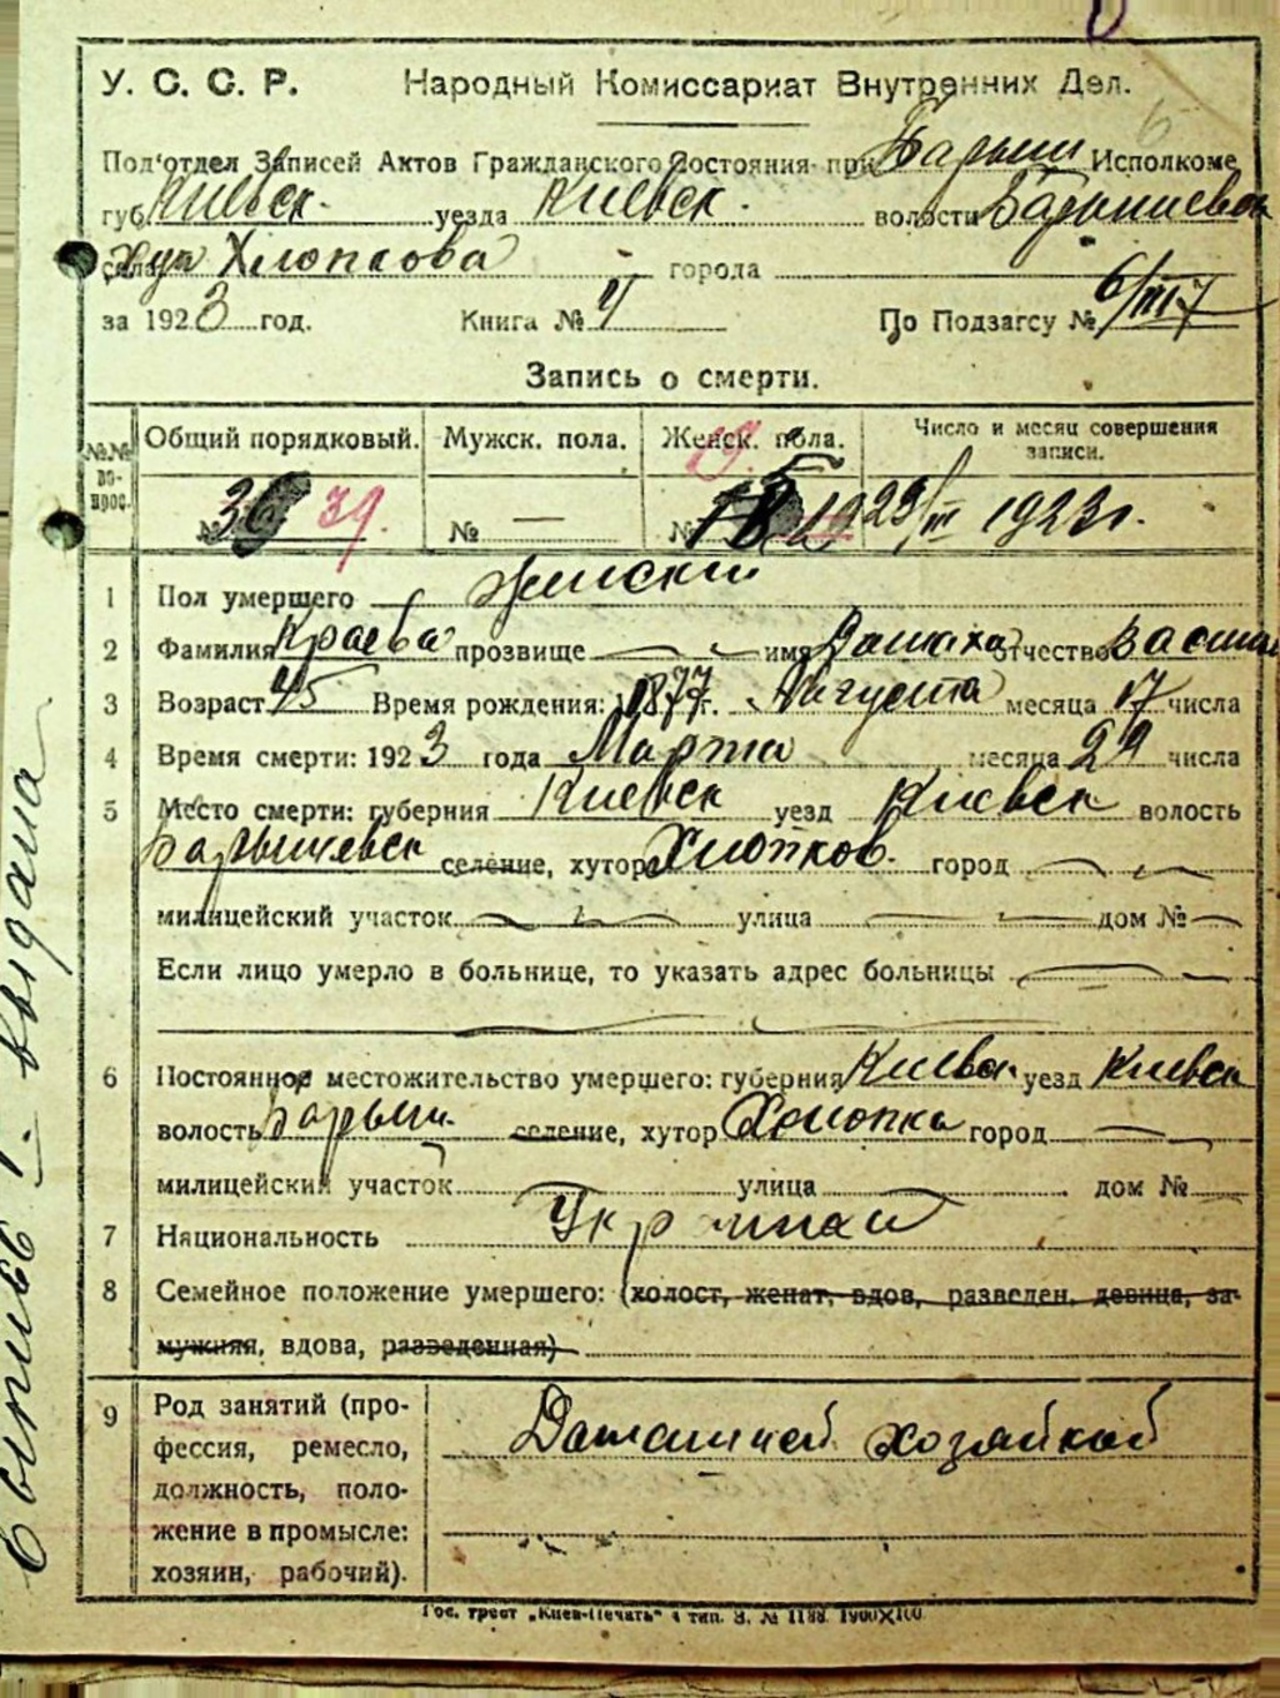 У. С. С. Р. Народный Комиссариат Внутренних Дел.
6
Под'отдел Записей Актов Гражданского Состояния при Барыш Исполкоме
губ. Киевск. уезда Киевск. волости Барышевск
села Хут Хлопкова города
за 1923 год. Книга № По Подзагсу № 6/III
Запись о смерти.
№№ вопрос. Общий порядковый. Мужск. пола. Женск. пола. Число и месяц совершения записи.
№ 39. № — № 19 29/III 1923 г.
1 Пол умершего Женский
2 Фамилия Краева прозвище — имя отчество Васил
3 Возраст 45 Время рождения: 1877 г. Августа месяца 17 числа
4 Время смерти: 1923 года Марта месяца 29 числа
5 Место смерти: губерния Киевск уезд Киевск волость
Барышевск селение, хутор Хлопков. город —
милицейский участок — улица — дом № —
Если лицо умерло в больнице, то указать адрес больницы —
6 Постоянное местожительство умершего: губерния Киевск уезд Киевск
волость Барыш. селение, хутор Хлопка город —
милицейский участок — улица — дом №
7 Национальность
8 Семейное положение умершего: (холост, женат, вдов, разведен, девица, за-
мужняя, вдова, разведенная)
9 Род занятий (про-
фессия, ремесло,
должность, поло-
жение в промысле:
хозяин, рабочий).
Домашней хозяйкой
Гос. трест „Киев-Печать“ 4 тип. З. № 1188 1900X100
выдана